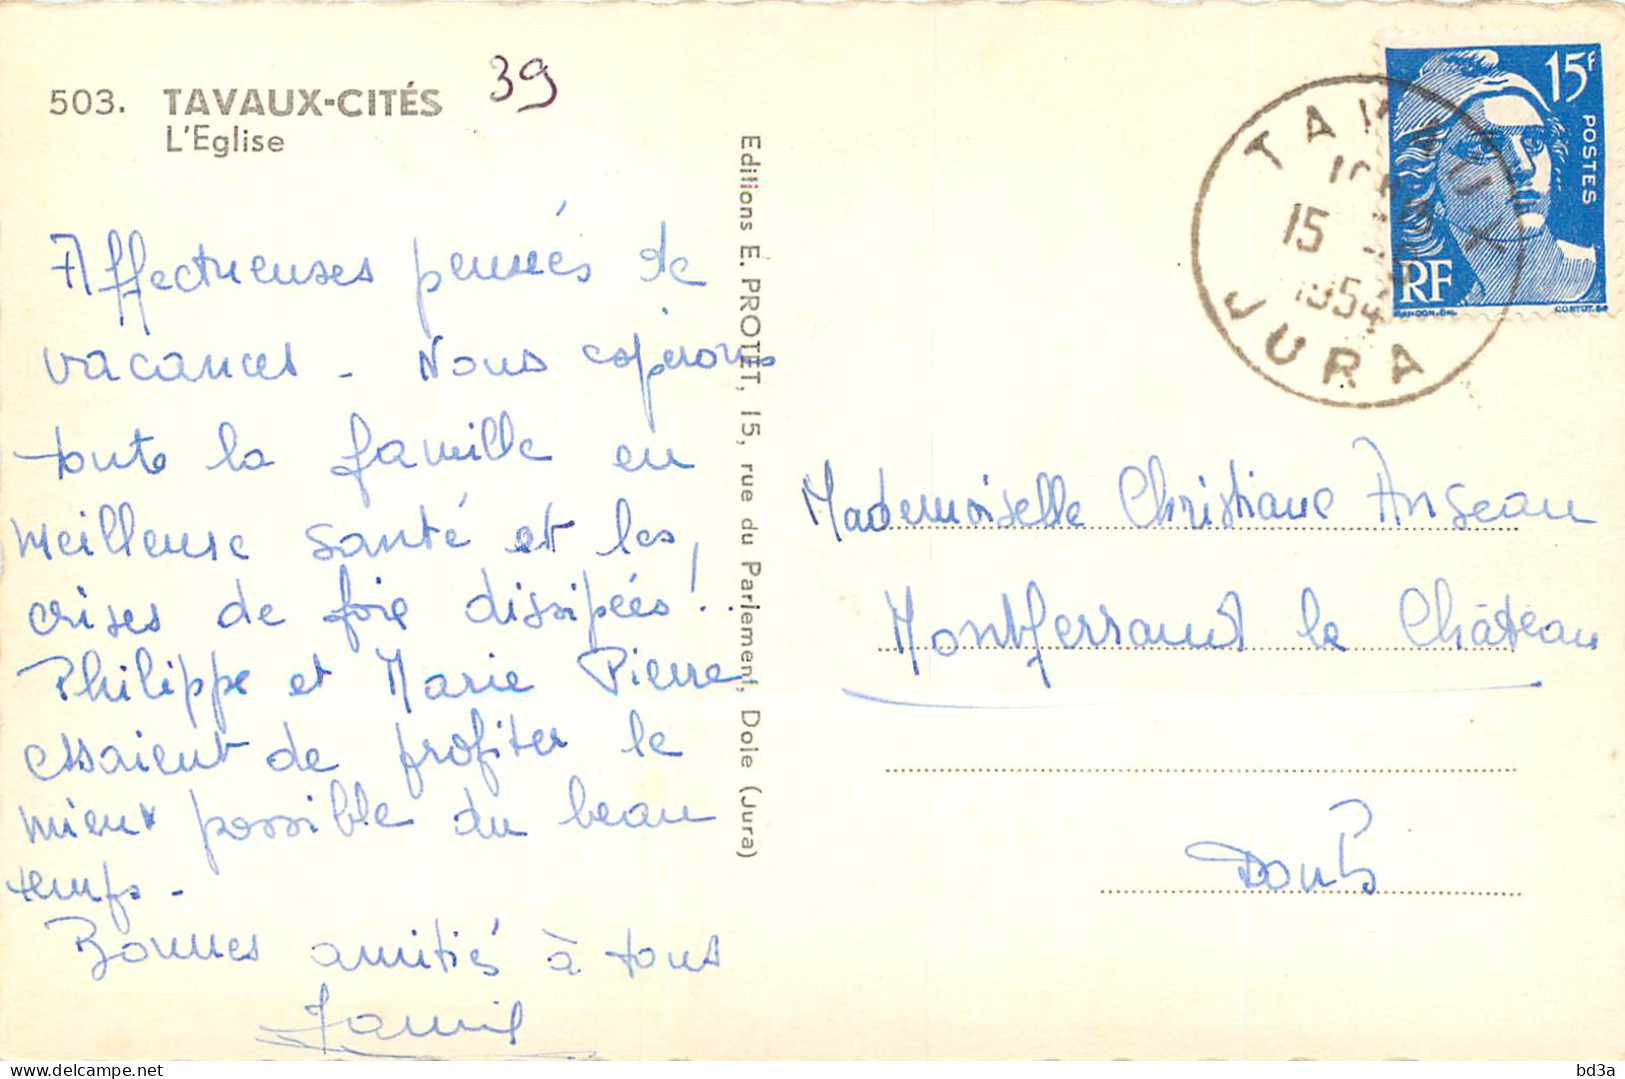 503. TAVAUX-CITÉS
L'Eglise
39
Affectueuses pensées de
vacances - Nous espérons
toute la famille en
meilleure santé et les
crises de foie dissipées !..
Philippe et Marie Pierre
essaient de profiter le
mieux possible du beau
temps -
Bonnes amitiés à tous
Editions E. PROTET, 15, rue du Parlement, Dole (Jura)
15f
POSTES
RF
GANDON.DEL
CORTOT.SC
TAVAUX
15
1954
JURA
Mademoiselle Christiane
Montferrand le Château
Doubs
bd3a